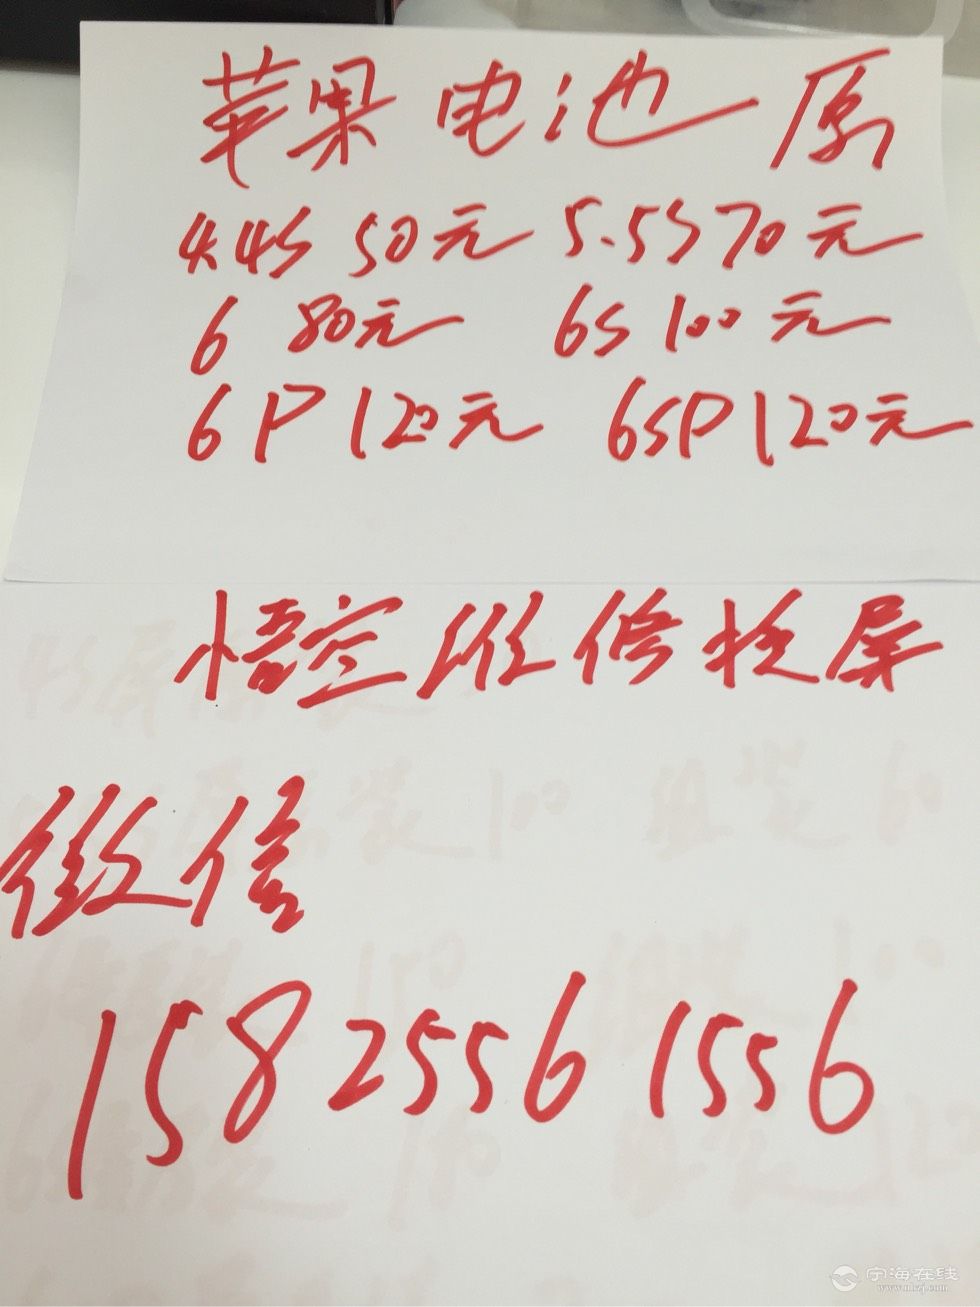 苹果电池原
4.4S 50元 5.5S 70元
6 80元 6S 100元
6P 120元 6SP 120元
悟空维修换屏
微信
158 2556 1556
宁海在线
www.nhzj.com